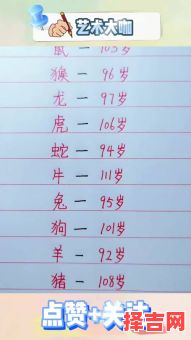 艺术大咖
鼠 — 103岁
猴 — 96岁
龙 — 97岁
虎 — 106岁
蛇 — 94岁
牛 — 111岁
兔 — 95岁
狗 — 101岁
羊 — 92岁
猪 — 108岁
点赞+关注
择吉网